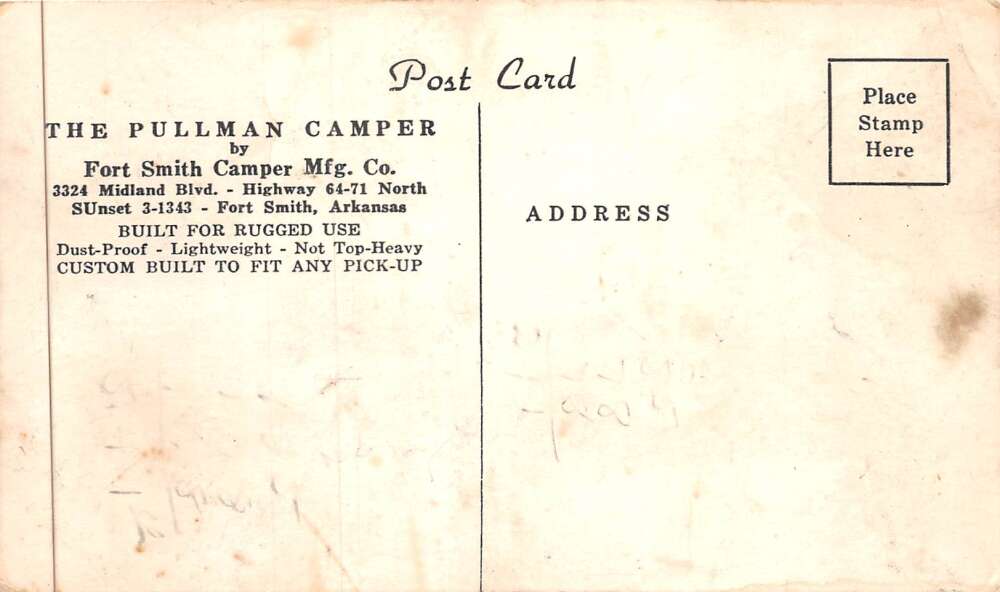 Post Card
THE PULLMAN CAMPER
by
Fort Smith Camper Mfg. Co.
3324 Midland Blvd. - Highway 64-71 North
SUnset 3-1343 - Fort Smith, Arkansas
BUILT FOR RUGGED USE
Dust-Proof - Lightweight - Not Top-Heavy
CUSTOM BUILT TO FIT ANY PICK-UP
ADDRESS
Place
Stamp
Here